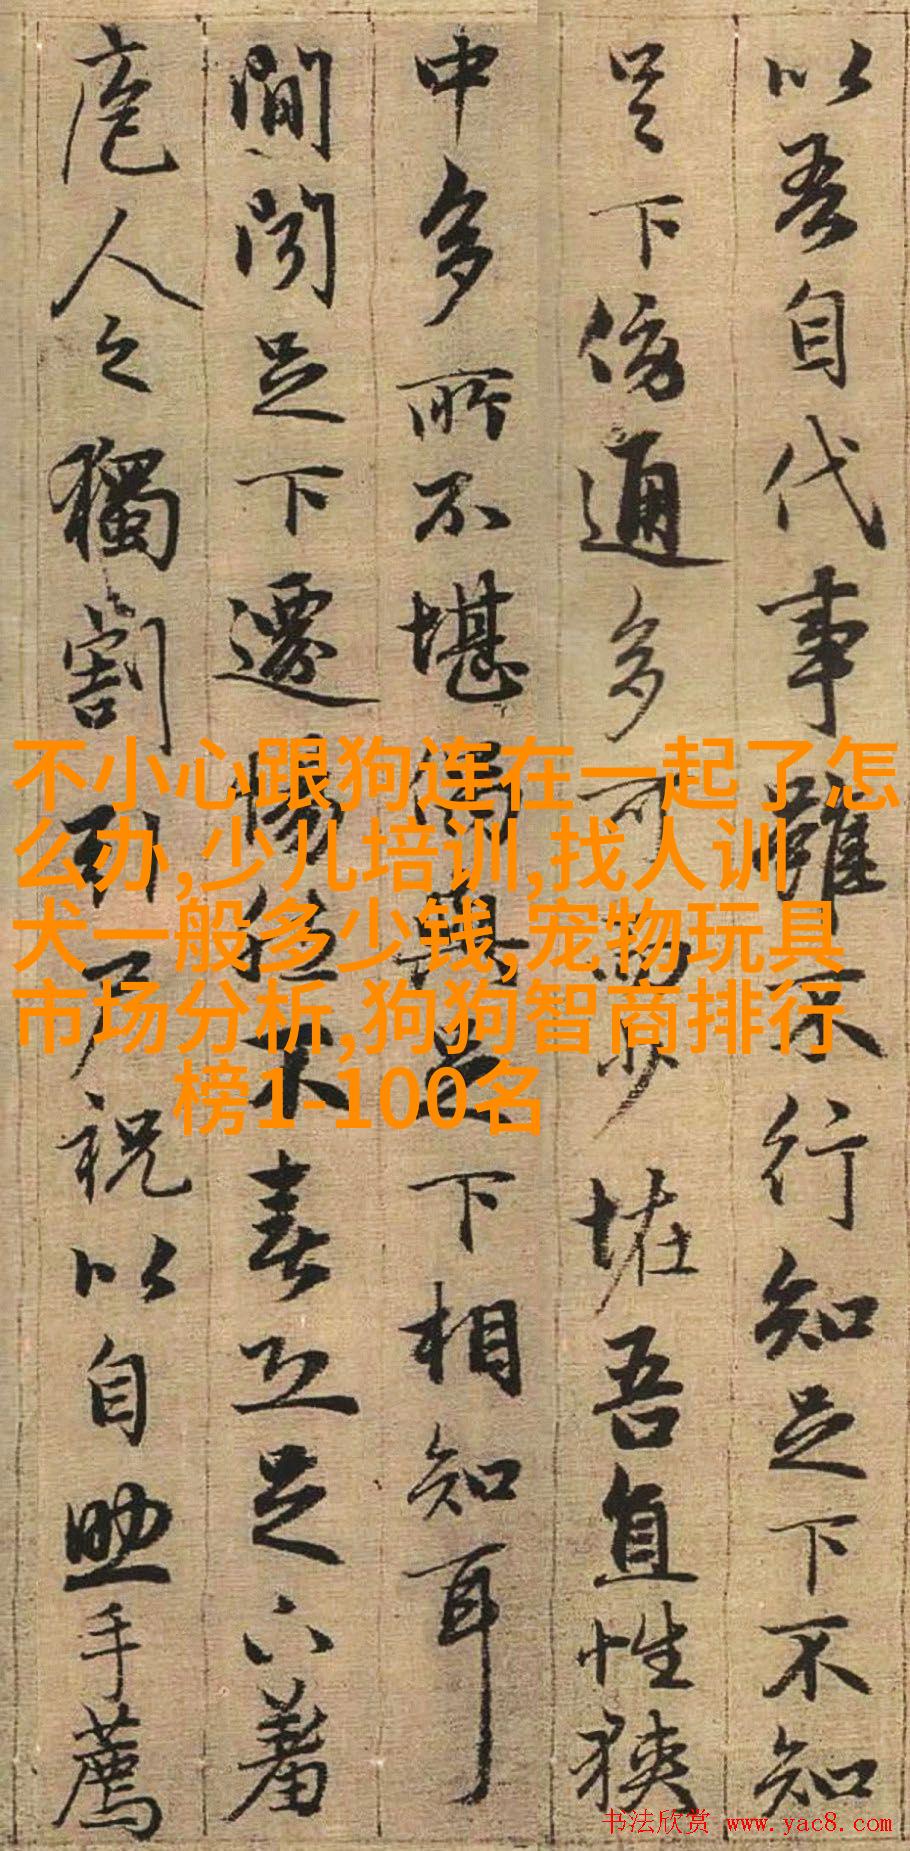 以吾自代事雖不行知足下不知
足下傍通多可而少恠吾直性狹
中多所不堪偶與足下相知耳
間聞足下遷惕然不喜恐足下羞
庖人之獨割引尸祝以自助手薦
不小心跟狗连在一起了怎
么办,少儿培训,找人训
犬一般多少钱,宠物玩具
市场分析,狗狗智商排行
榜1-100名
书法欣赏 www.yac8.com